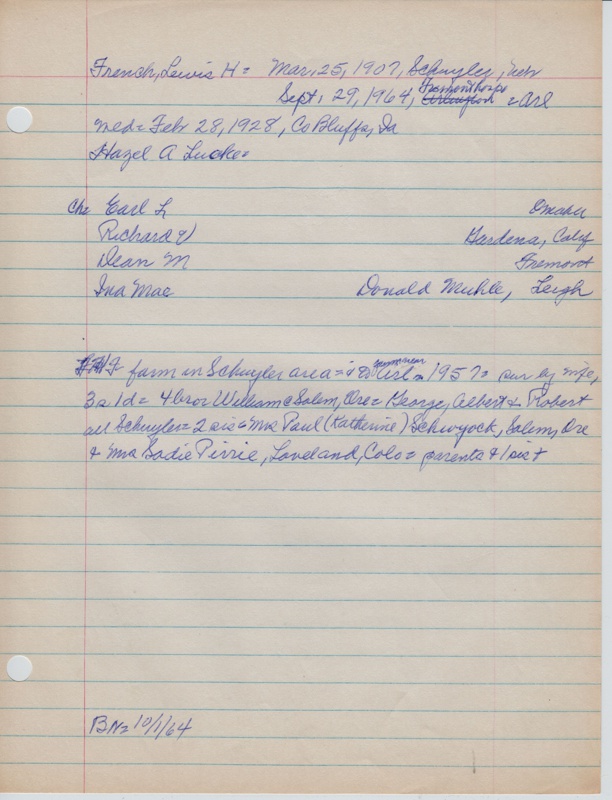 French, Lewis H = Mar, 25, 1907, Schuyler, neb
Sept, 29, 1964, Fremont hosp Arlington = Arl
med = Feb 28, 1928, Co Bluffs, Ia
Hazel A Lucke =
Ch = Earl L Omaha
Richard W Gardena, Calif
Dean M Fremont
Ina Mae Donald Muhle, Leigh
farm in Schuyler area = Arl = 1957 = sur by wife,
3s 1d = 4 bro = William = Salem, Ore = George, Albert & Robert
all Schuyler = 2 sis = Mrs Paul (Katherine) Schwyock, Salem, Ore
& Mrs Sadie Pirrie, Loveland, Colo = parents & 1 sis +
BN = 10/1/64